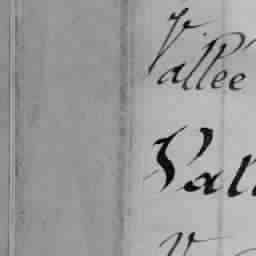 Vallée
Vall
V